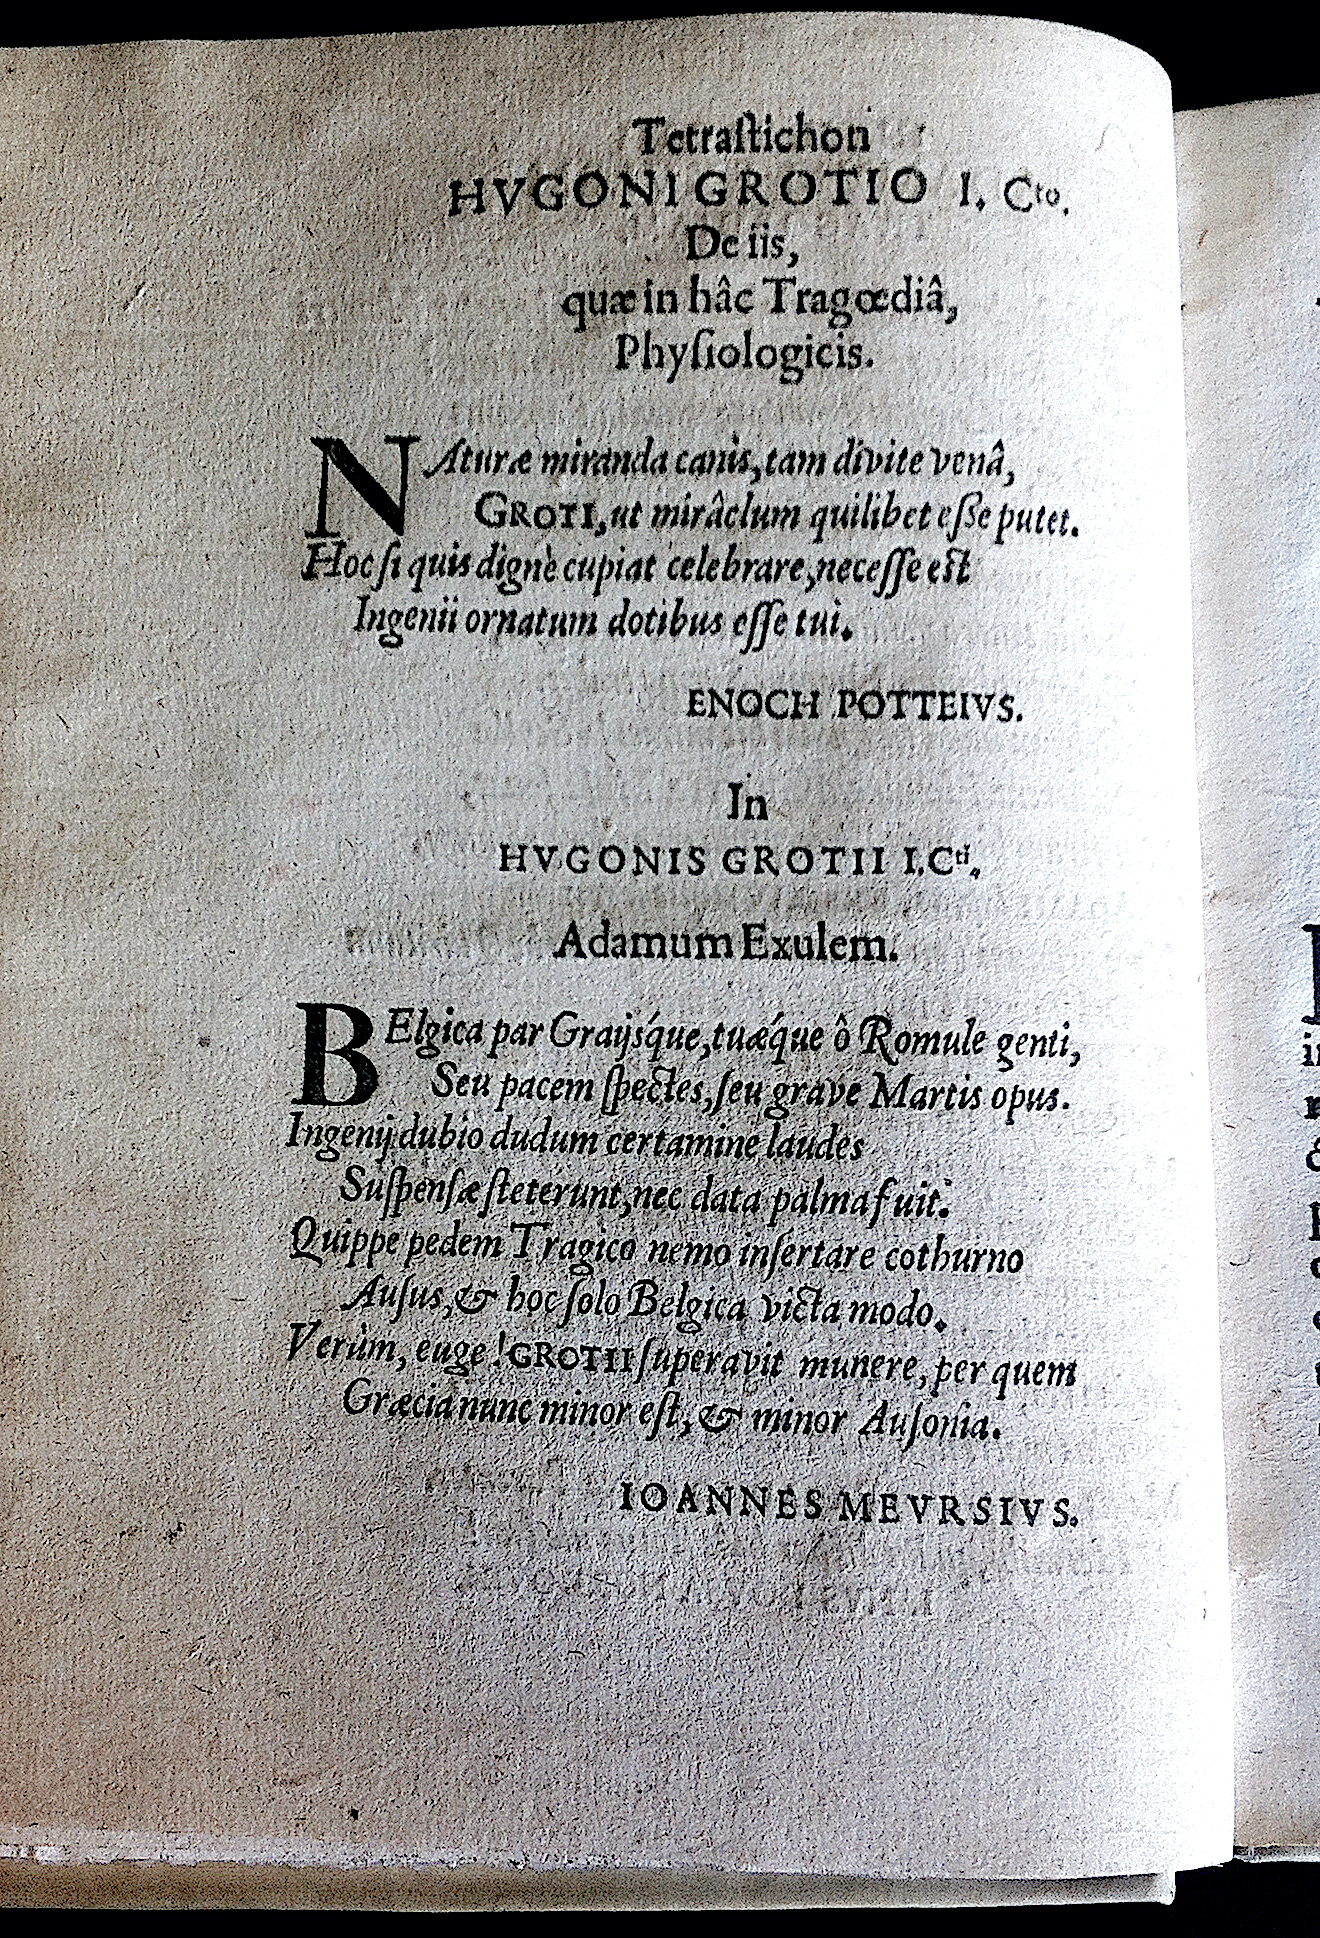 Tetraſtichon
HVGONI GROTIO I. Cto.
De iis,
quæ in hâc Tragœdiâ,
Phyſiologicis.
NAturæ miranda canis, tam divite venâ,
GROTI, ut mirâclum quilibet eſſe putet.
Hoc ſi quis dignè cupiat celebrare, neceſſe eſt
Ingenii ornatum dotibus eſſe tui.
ENOCH POTTEIVS.
In
HVGONIS GROTII I.Cti.
Adamum Exulem.
BElgica par Graijsq́ue, tuæq́ue ô Romule genti,
Seu pacem ſpectes, ſeu grave Martis opus.
Ingenij dubio dudum certamine laudes
Suſpenſæ ſteterunt, nec data palma fuit.
Quippe pedem Tragico nemo inſertare cothurno
Auſus, & hoc ſolo Belgica victa modo.
Verùm, euge! GROTII ſuperavit munere, per quem
Græcia nunc minor eſt, & minor Auſonia.
IOANNES MEVRSIVS.